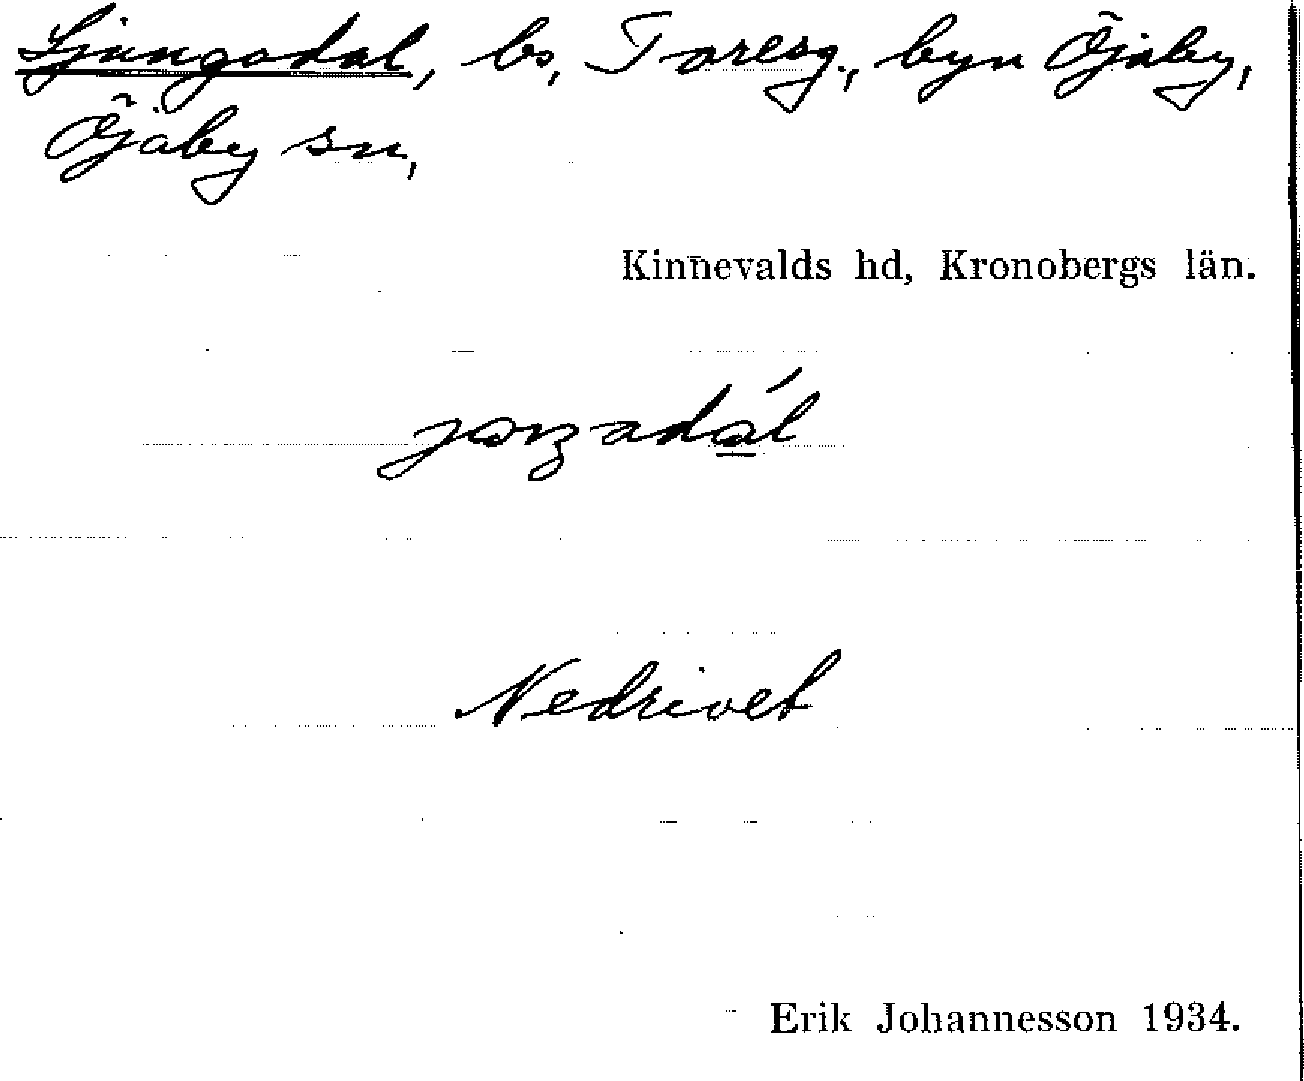 Ljungadal, bs, Toresg., byn Öjaby,
Öjaby sn,
Kinnevalds hd, Kronobergs län.
Nedrivet
Erik Johannesson 1934.